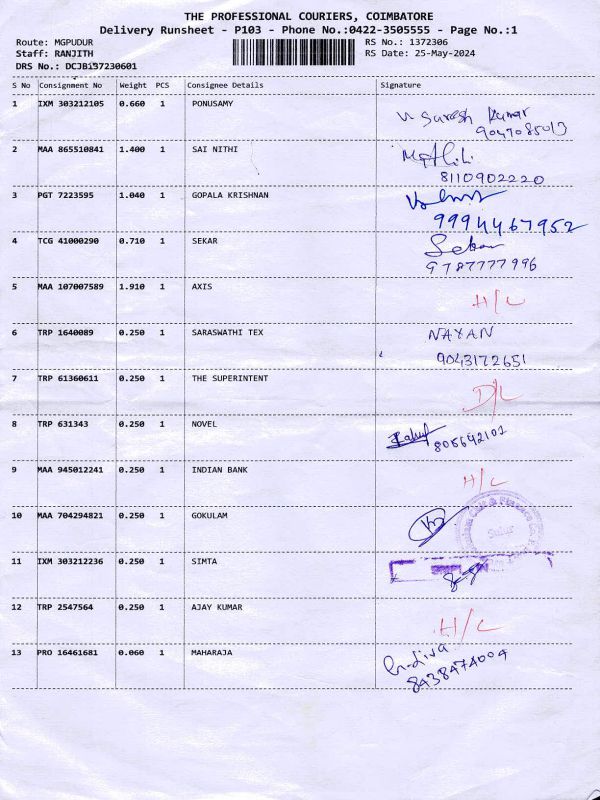 THE PROFESSIONAL COURIERS, COIMBATORE
Delivery Runsheet - P103 - Phone No.:0422-3505555 - Page No.:1
Route: MGPUDUR RS No.: 1372306
Staff: RANJITH RS Date: 25-May-2024
DRS No.: DCJBi37230601
S No Consignment No Weight PCS Consignee Details Signature
1 IXM 303212105 0.660 1 PONUSAMY Suresh Kumar
9047085013
2 MAA 865510841 1.400 1 SAI NITHI
8110902220
3 PGT 7223595 1.040 1 GOPALA KRISHNAN
9994467952
4 TCG 41000290 0.710 1 SEKAR Sekar
9787777996
5 MAA 107007589 1.910 1 AXIS H/C
6 TRP 1640089 0.250 1 SARASWATHI TEX NAYAN
9043172651
7 TRP 61360611 0.250 1 THE SUPERINTENT D/L
8 TRP 631343 0.250 1 NOVEL
805642102
9 MAA 945012241 0.250 1 INDIAN BANK H/C
10 MAA 704294821 0.250 1 GOKULAM
Sulur
11 IXM 303212236 0.250 1 SIMTA
12 TRP 2547564 0.250 1 AJAY KUMAR H/C
13 PRO 16461681 0.060 1 MAHARAJA
8438474004